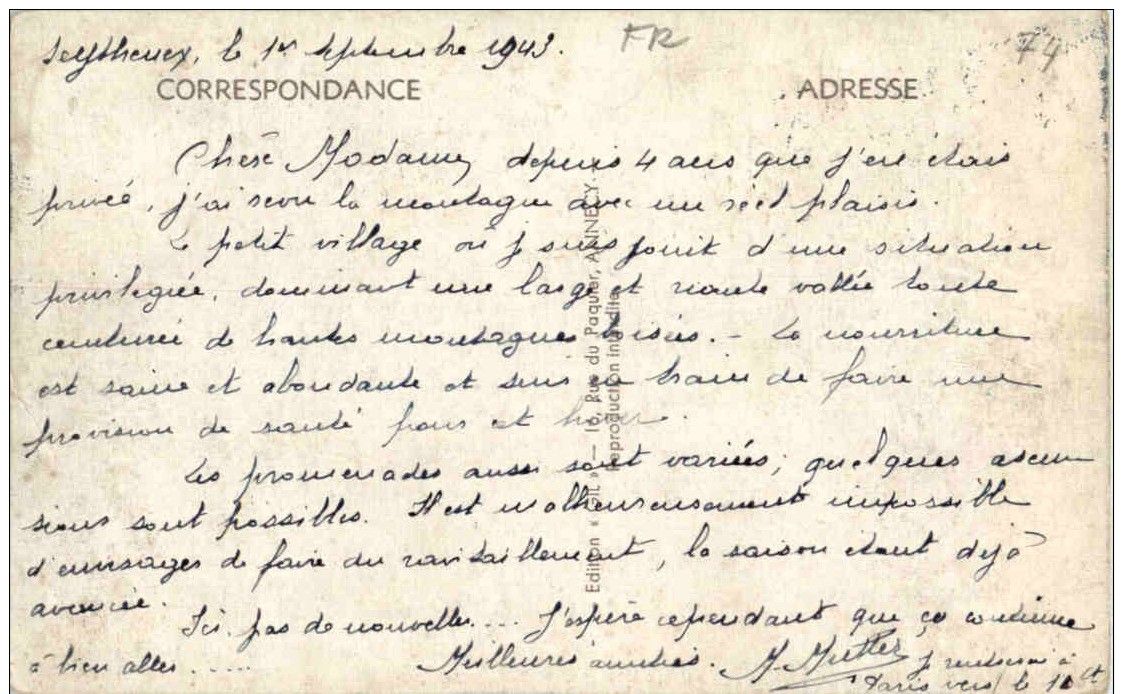 Seythenex, le 1er Septembre 1943.
FR
74
CORRESPONDANCE
ADRESSE
Chère Madame, depuis 4 ans que j'en étais
privée, j'ai revu la montagne avec un réel plaisir.
Le petit village où j suis jouit d'une situation
privilégiée, dominant une large et haute vallée toute
ceinturée de hautes montagnes boisées. - La nourriture
est saine et abondante et suis en train de faire une
provision de santé pour cet hiver.
Les promenades aussi sont variées; quelques ascen
sions sont possibles. Il est malheureusement impossible
d'envisager de faire du ravitaillement, la saison étant déjà
avancée.
Ici, pas de nouvelles.... J'espère cependant que ça continue
à bien aller.....
Meilleures amitiés.
j rentrerai à
Paris vers le 10 ct
16, Rue du Paquier, ANNECY
Reproduction interdite